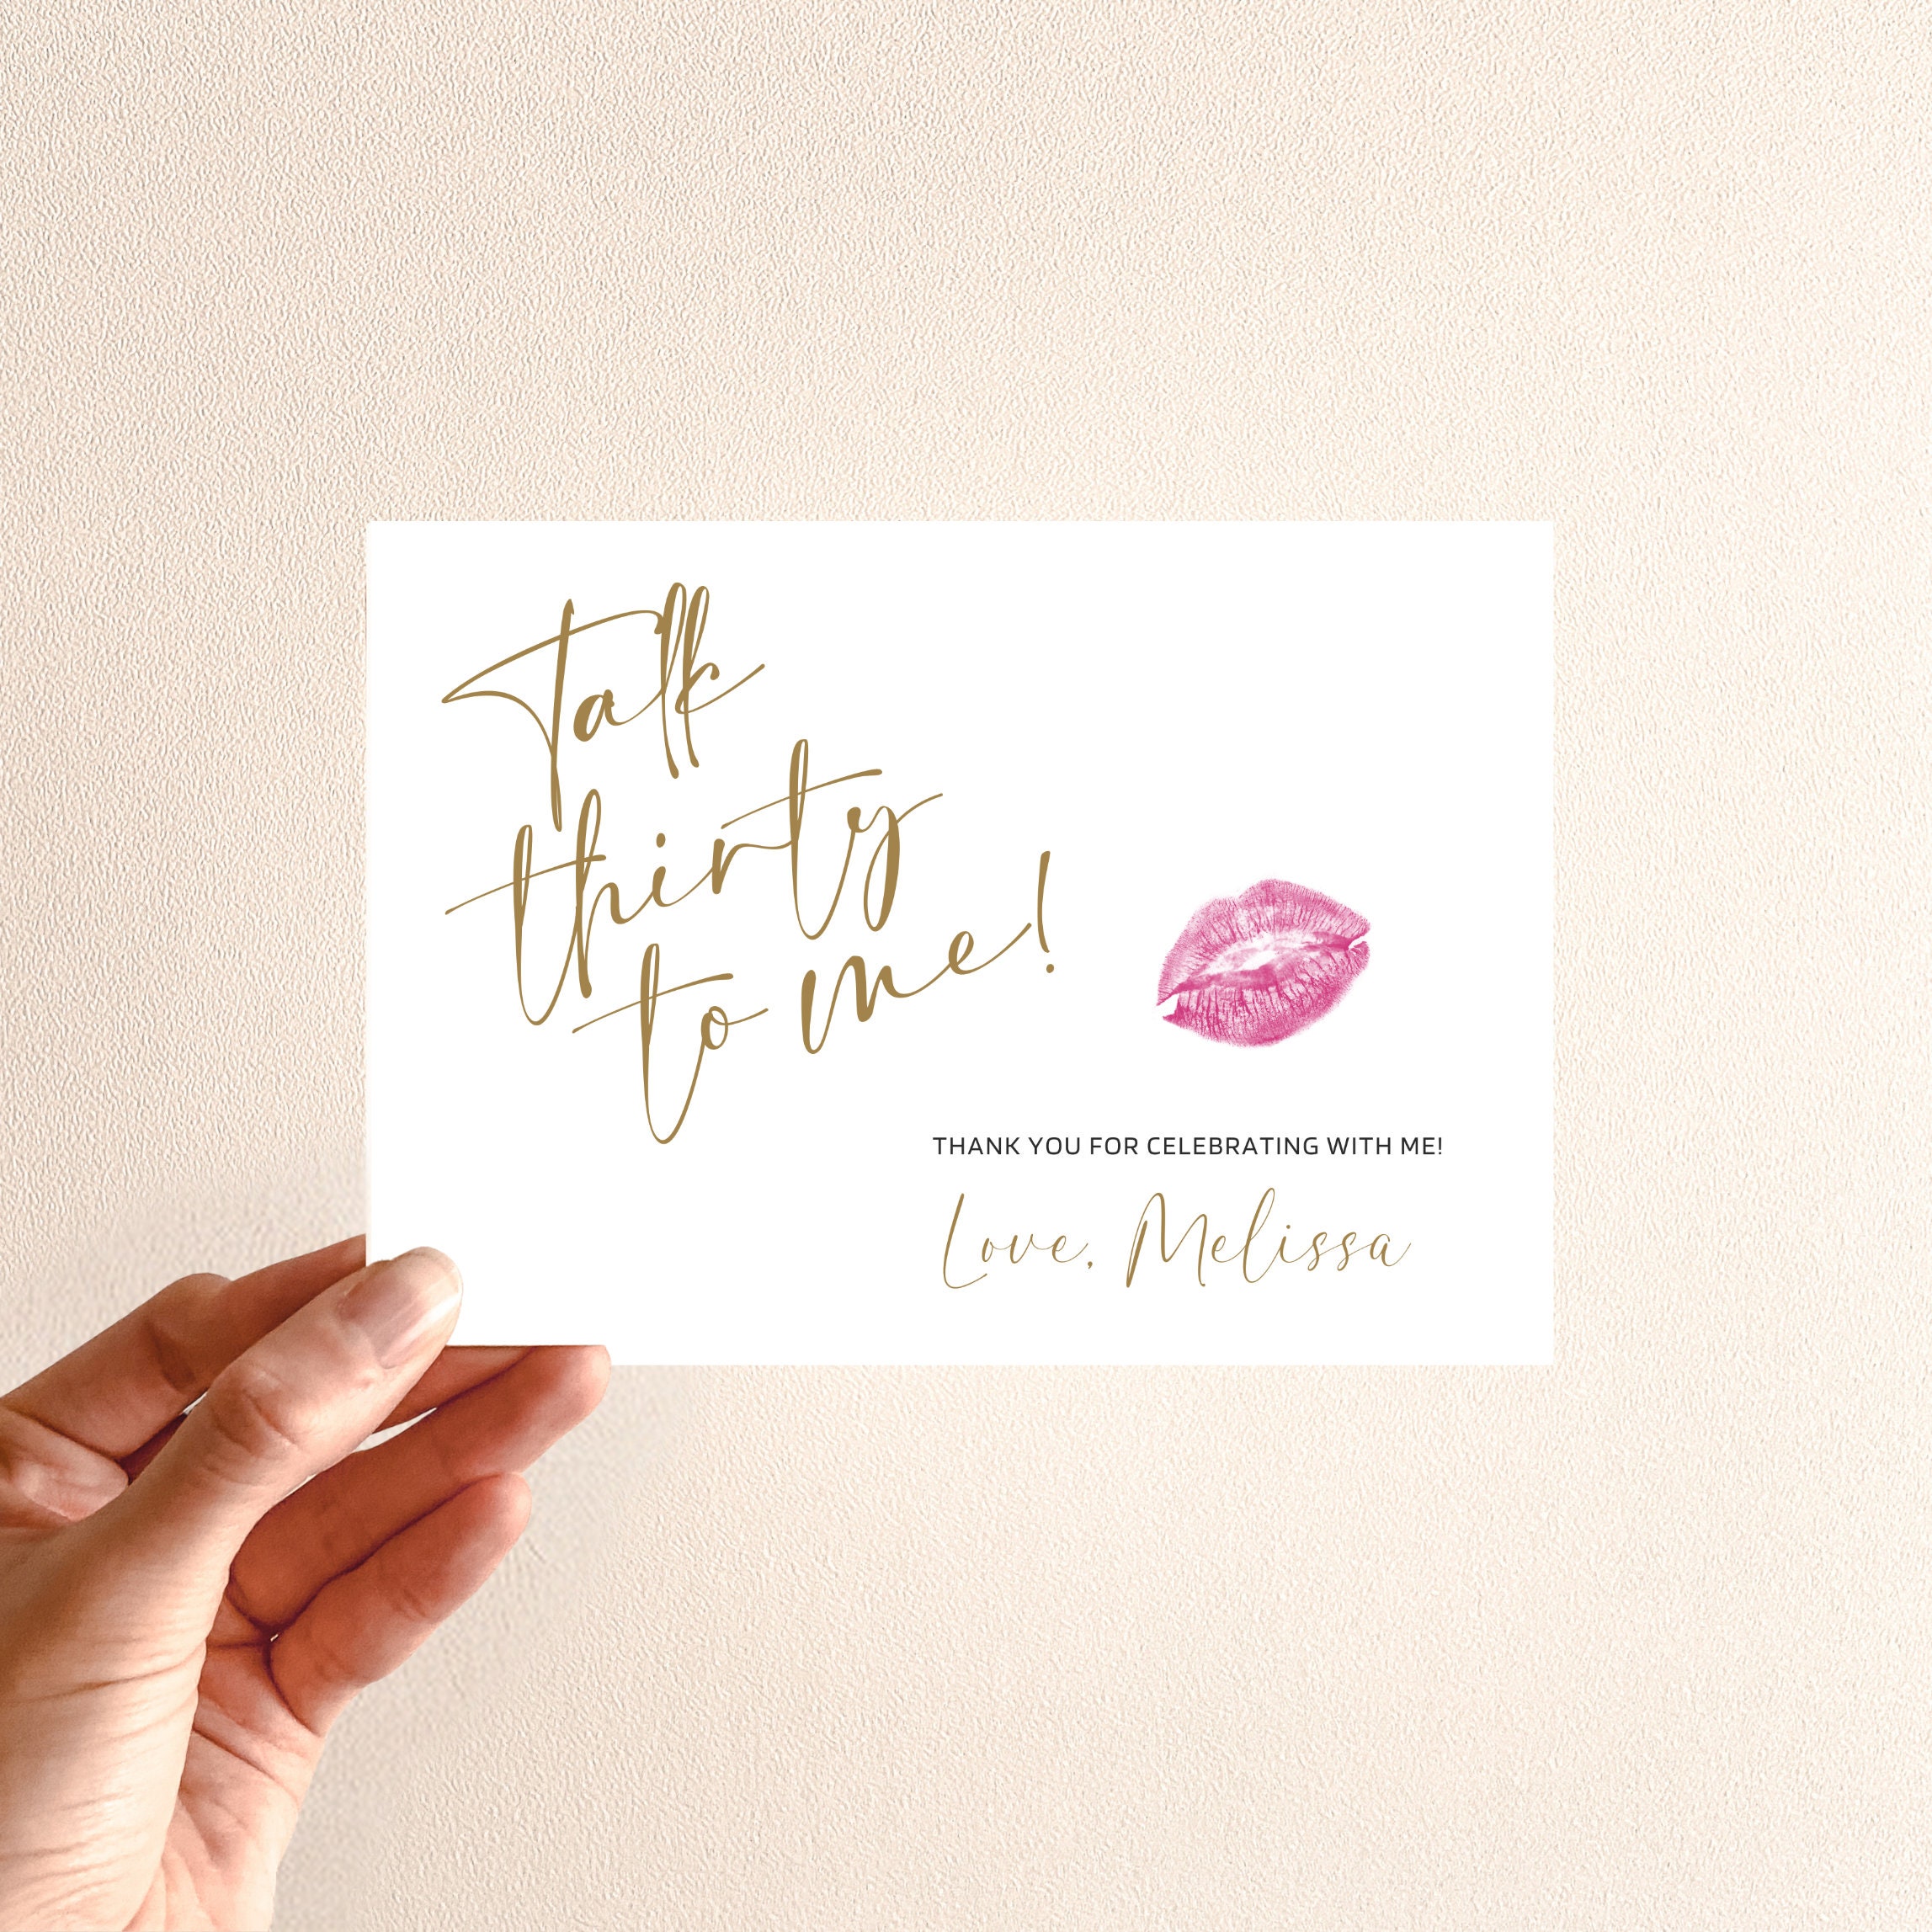 Talk
thirty
to me!
THANK YOU FOR CELEBRATING WITH ME!
Love, Melissa